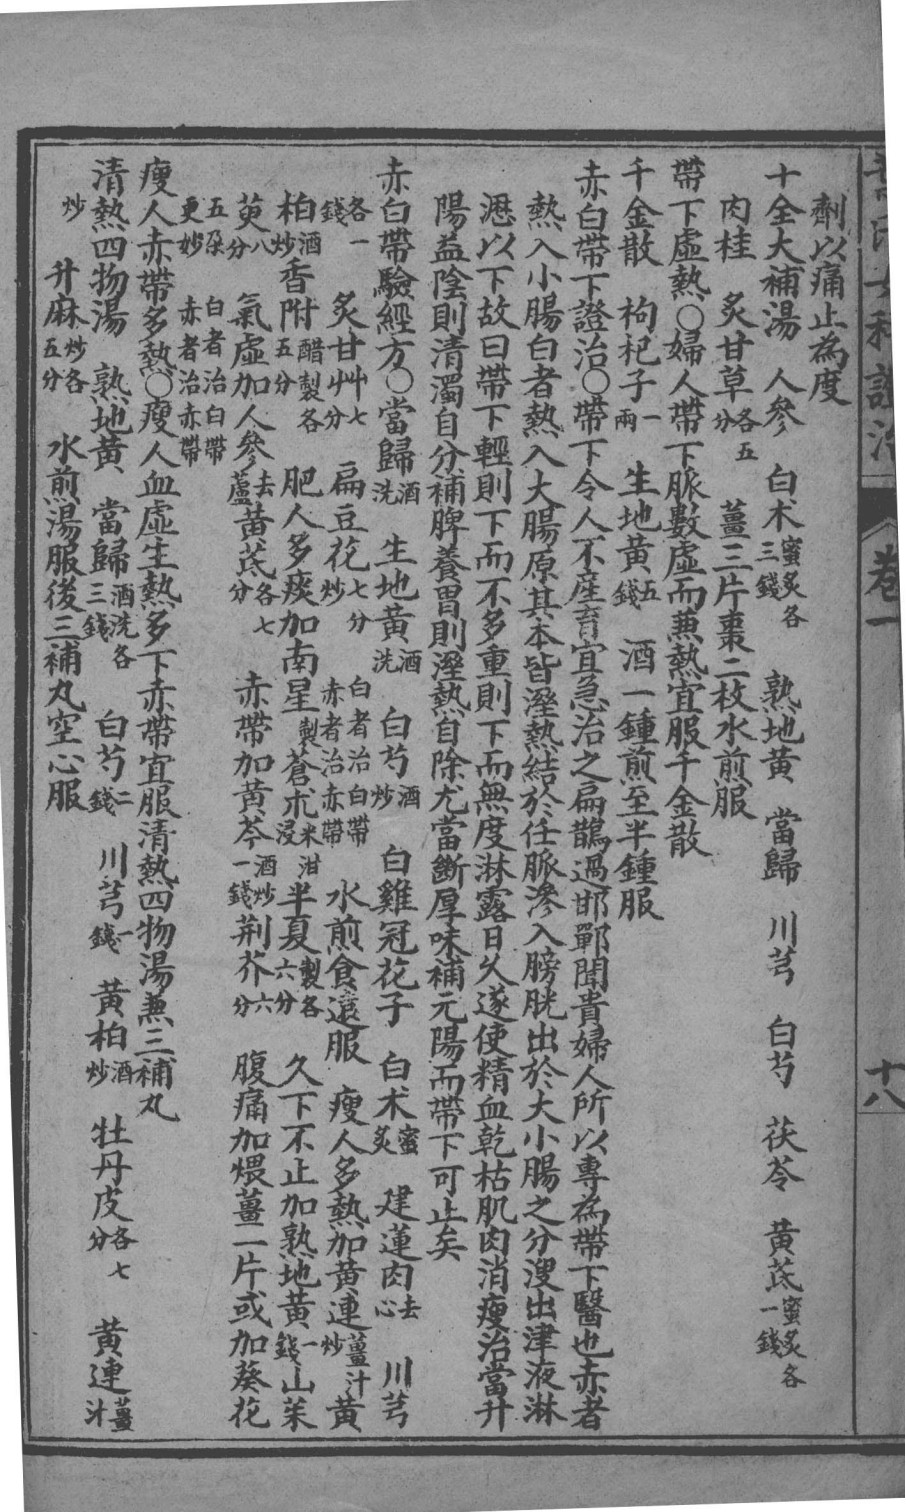 卷一
十八
劑以痛止為度
十全大補湯 人參 白术蜜炙各三錢 熟地黃 當歸 川芎 白芍 茯苓 黃茋蜜炙各一錢
肉桂 炙甘草各五分 薑三片棗二枚水煎服
帶下虛熱〇婦人帶下脈數虛而兼熱宜服千金散
千金散 枸杞子一兩 生地黃五錢 酒一鍾煎至半鍾服
赤白帶下證治〇帶下令人不產育宜急治之扁鵲過邯鄲聞貴婦人所以專為帶下醫也赤者
熱入小腸白者熱入大腸原其本皆溼熱結於任脈滲入膀胱出於大小腸之分溲出津液淋
瀝以下故曰帶下輕則下而不多重則下而無度淋露日久遂使精血乾枯肌肉消瘦治當升
陽益陰則清濁自分補脾養胃則溼熱自除尤當斷厚味補元陽而帶下可止矣
赤白帶驗經方〇當歸酒洗 生地黃酒洗 白芍酒炒 白雞冠花子 白术蜜炙 建蓮肉去心 川芎
各一錢 炙甘艸七分 扁豆花七分炒 白者治白帶赤者治赤帶 水煎食遠服 瘦人多熱加黃連薑汁炒黃
柏酒炒香附醋製各五分 肥人多痰加南星製蒼朮米泔浸半夏製各六分 久下不止加熟地黃一錢山茱
萸八分 氣虛加人參去蘆黃茋各七分 赤帶加黃芩酒炒一錢荆芥六分 腹痛加煨薑一片或加葵花
五朶更妙 白者治白帶赤者治赤帶
瘦人赤帶多熱〇瘦人血虛生熱多下赤帶宜服清熱四物湯兼三補丸
清熱四物湯 熟地黃 當歸酒洗各三錢 白芍二錢 川芎一錢 黃柏酒炒 牡丹皮各七分 黃連薑汁
炒 升麻炒各五分 水煎湯服後三補丸空心服